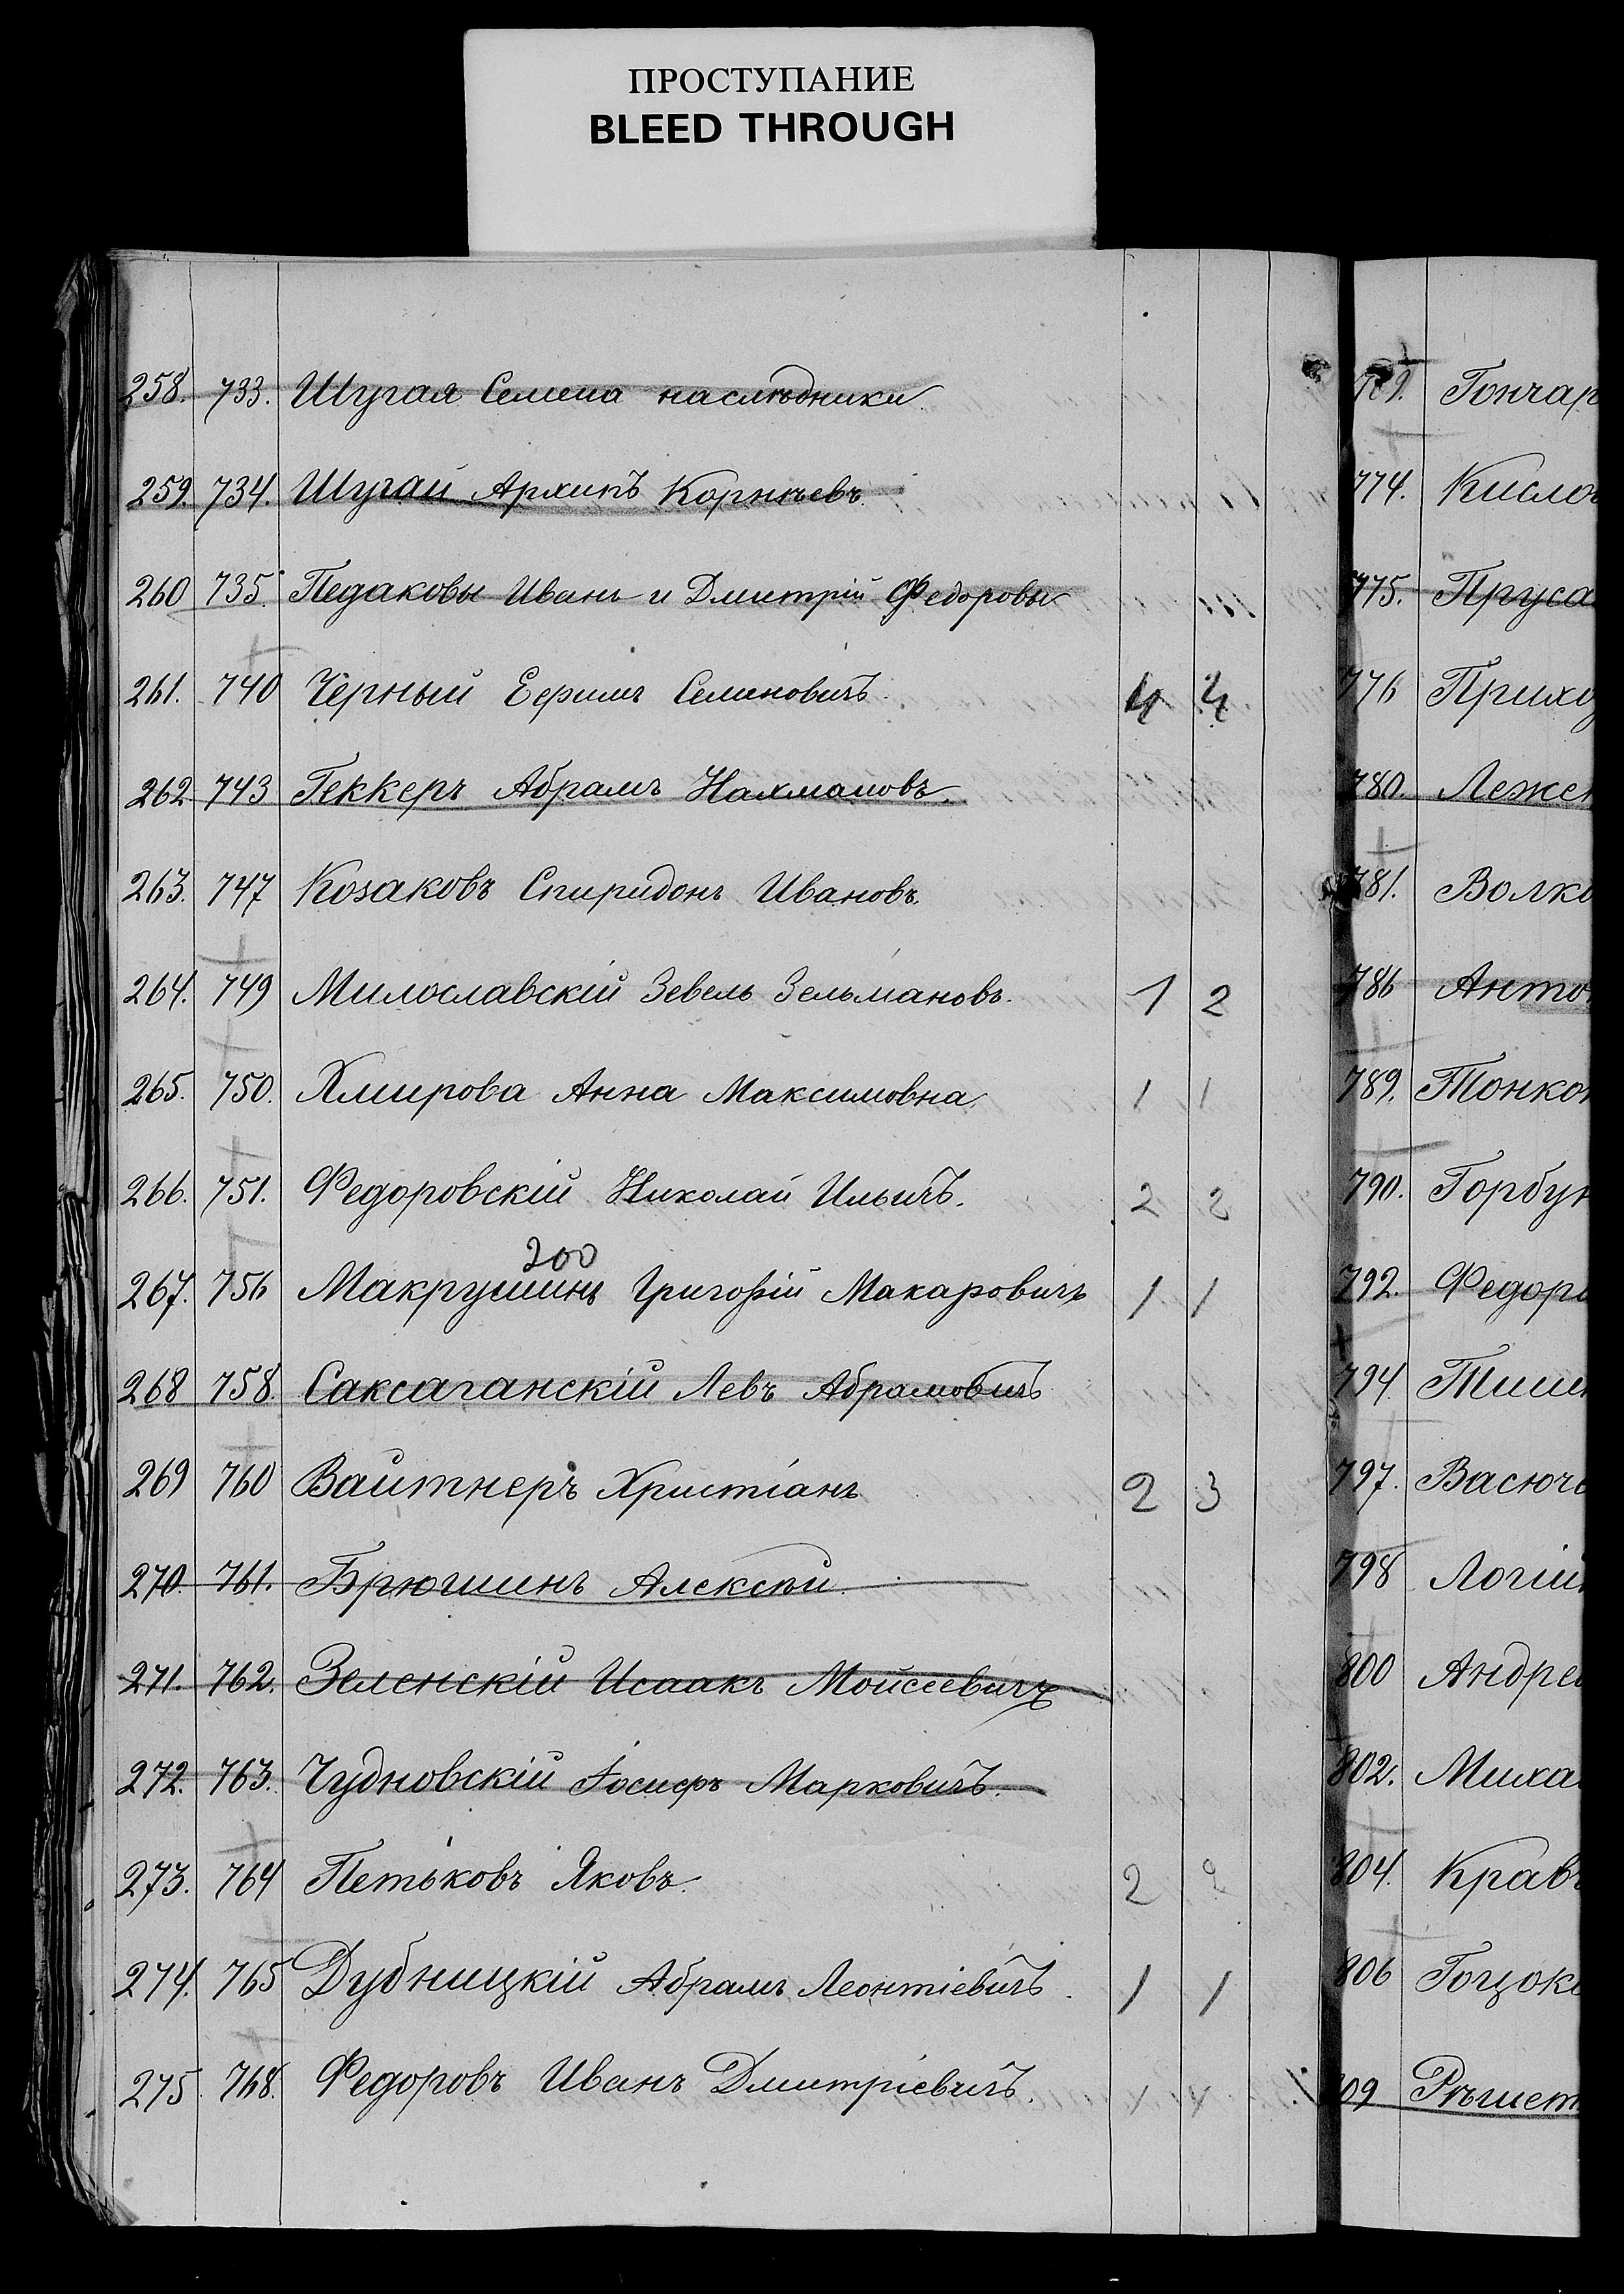 ПРОСТУПАНИЕ
BLEED THROUGH
258. 733. Шугая Семена наслѣдники
259. 734. Шугай Архипъ Корнѣевъ.
260 735. Педаковы Иванъ и Дмитрій Федоровы
261. 740 Черный Ефимъ Семеновичъ. 4 4
262 743 Геккеръ Абрамъ Нахмановъ.
263. 747 Козаковъ Спиридонъ Ивановъ.
264. 749 Милославскій Зевель Зельмановъ. 1 2
265. 750. Хмирова Анна Максимовна. 1 1
266. 751. Федоровскій Николай Ильичъ. 2 2
200
267. 756 Макрушинъ Григорій Макаровичъ 1 1
268 758. Саксаганскій Левъ Абрамовичъ
269 760 Вайтнеръ Христіанъ 2 3
270. 761. Брюшинъ Алексѣй.
271. 762. Зеленскій Исаакъ Мойсеевичъ
272. 763. Чудновскій Іосифъ Марковичъ.
273. 764 Петьковъ Яковъ. 2 2
274. 765 Дубницкій Абрамъ Леонтіевичъ. 1 1
275. 768. Федоровъ Иванъ Дмитріевичъ. 1
769. Гончар
774. Кисло
775. Пруса
776 Прихо
780. Лежен
781. Волко
786 Анто
789. Тонко
790. Горбун
792. Федор
794. Тиш
797. Васюч
798 Логи
800 Андре
802. Миха
804. Крав
806 Гоцок
809 Рѣшет